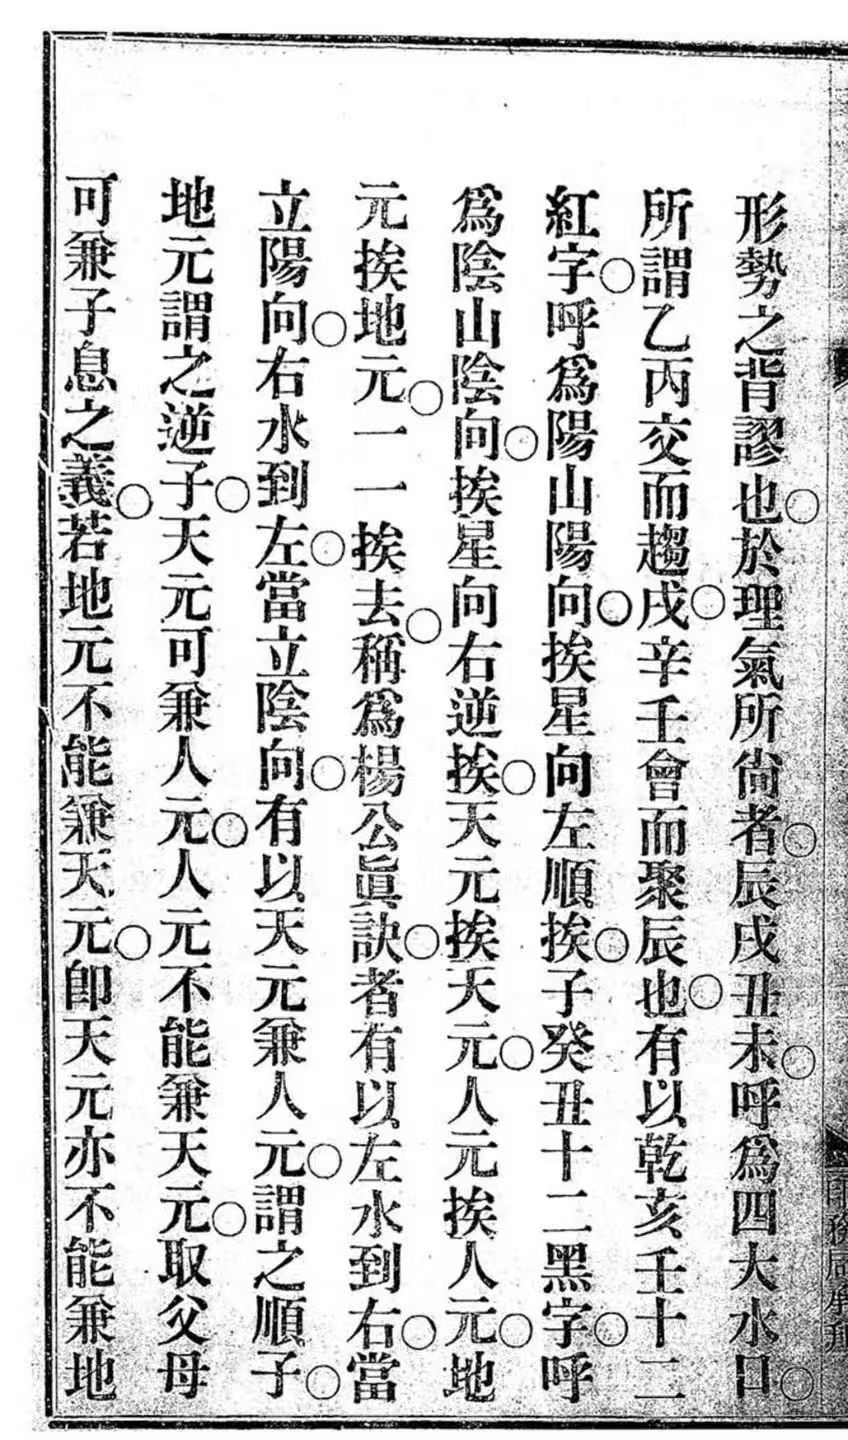 形勢之背謬也○於理氣所尙者○辰戌丑未○呼爲四大水口○
所謂乙丙交而趨戌○辛壬會而聚辰也○有以乾亥壬十二
紅字○呼爲陽山陽向○挨星向左順挨○子癸丑十二黑字○呼
爲陰山陰向○挨星向右逆挨○天元挨天元○人元挨人元○地
元挨地元○一一挨去○稱爲楊公眞訣○者有以左水到右○當
立陽向○右水到左○當立陰向○有以天元兼人元○謂之順子○
地元謂之逆子○天元可兼人元○人元不能兼天元○取父母
可兼子息之義○若地元不能兼天元○卽天元亦不能兼地
印務局承刊